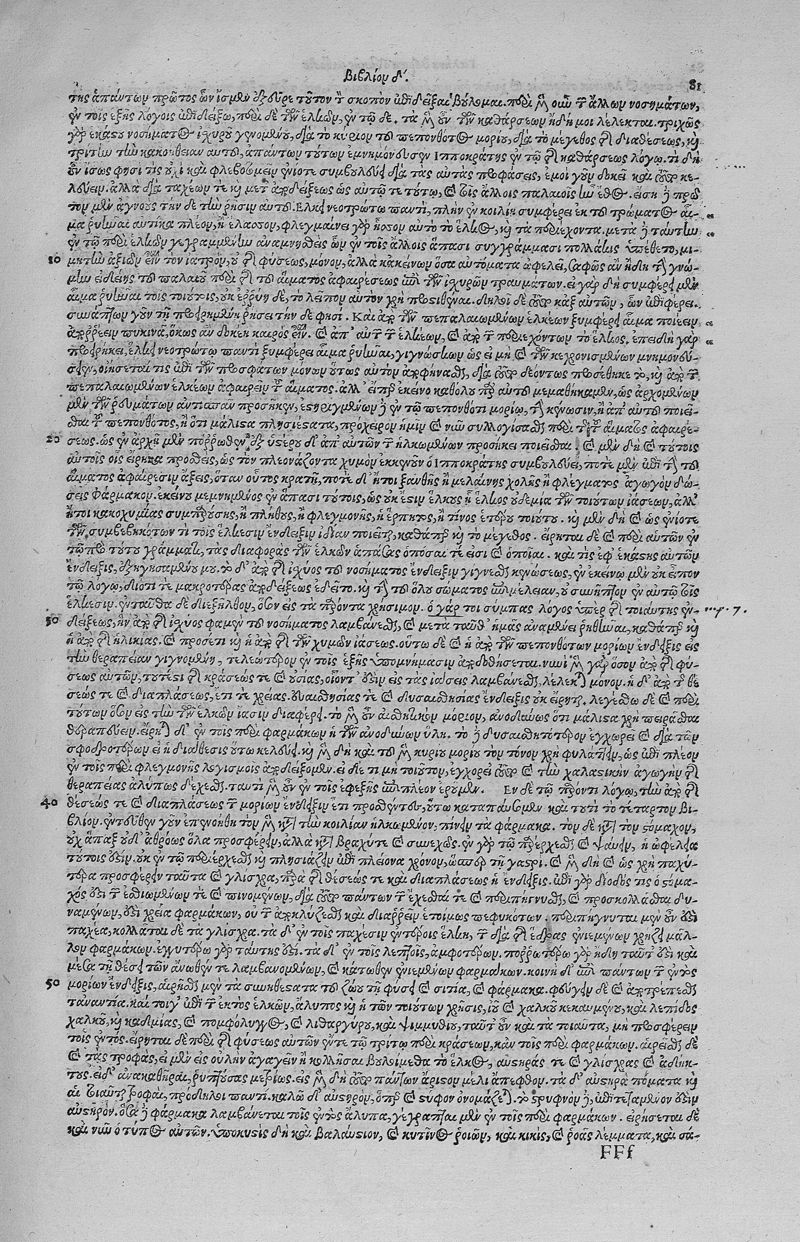 Βιβλίον δ'.
81
της ἁπάντων πρῶτος ὧν ἴσμεν ἐξεῦρε τοῦτον τὸν σκοπὸν ἐπιδεῖξαι βούλομαι. περὶ μὲν οὖν τῶν ἄλλων νοσημάτων,
ἐν τοῖς ἑξῆς λόγοις ἐπιδείξω, περὶ δὲ τῶν ἑλκῶν, ἐν τῷδε. τὰ μὲν οὖν τῶν καθάρσεων ἤδη μοι λέλεκται. τριχῶς
γὰρ ἑκάστου νοσήματος ἰσχυροῦ γινομένου, διὰ τὸ κύριον τοῦ πεπονθότος μορίου, διὰ τὸ μέγεθος τῆς διαθέσεως, καὶ
τρίτον τὴν κακοήθειαν αὐτοῦ, ἁπάντων τούτων ἐμνημόνευσεν ἱπποκράτης ἐν τῷ τῆς καθάρσεως λόγῳ. τί δὴ
οὖν ἴσως φησί τις οὐχὶ καὶ φλεβοτομεῖν ἐνίοτε συμβουλεύει διὰ τὰς αὐτὰς προφάσεις, ἐμοὶ γοῦν δοκεῖ καὶ τοῦτο κε-
λεύειν. ἀλλὰ διὰ ταχέων τε καὶ μετ' ἀποδείξεως ὡς αὐτῷ τε τούτῳ, καὶ τοῖς ἄλλοις παλαιοῖς ἦν ἔθος.
τοῦ μὲν ἁγνοὺς τὴν δὲ τὴν ῥῆσιν αὐτοῦ. Ἕλκει νεοτρώτῳ παντὶ, πλὴν ἐν κοιλίῃ συμφέρει ἐκ τοῦ τρώματος αἷ-
μα ῥυῆναι αὐτίκα πλέον, ἢ ἔλασσον, φλεγμαίνει γὰρ ἧσσον αὐτὸ τὸ ἕλκος, καὶ τὰ περιέχοντα. μετὰ ταύτην
ἐν τῷ περὶ ἑλκῶν γεγραμμένην ἀναμνησθεὶς ὧν ἐν τοῖς ἄλλοις ἅπασι συγγράμμασι πολλάκις ὑπέθετο, μι-
10 μητὴν ἀξιῶν εἶναι τὸν ἰατρὸν, οὐ τῆς φύσεως, μόνον, ἀλλὰ κἀκείνων ὅσα αὐτόματα ὠφελεῖ, σαφῶς ἂν ἤδη τὴν γνώ-
μην εἰδείης τοῦ παλαιοῦ περὶ τῆς τοῦ αἵματος ἀφαιρέσεως ἐπὶ τῶν ἰσχυρῶν τραυμάτων. εἰ γὰρ δὴ συμφέρει μὲν
αἷμα ῥυῆναι τοῖς τοιούτοις, οὐκ ἐρρύη δὲ, τὸ λεῖπον αὐτὸν χρὴ προστιθέναι. δηλοῖ δὲ τοῦτο κἀξ αὐτῶν, ὧν ἐπιφέρει.
συνάπτων γοῦν τῇ προειρημένῃ ῥήσει τήν δέ φησι. Καὶ ἀπὸ τῶν πεπαλαιωμένων ἑλκέων ξυμφέρει αἷμα ποιέειν
ἀπορρέειν πυκινὰ, ὅκως ἂν δοκέῃ καιρὸς εἶναι. καὶ ἀπ' αὐτῶν τῶν ἑλκέων, καὶ ἀπὸ τῶν περιεχόντων τὸ ἕλκος, ἐπειδὴ γὰρ
προείρηκει, ἕλκει νεοτρώτῳ παντὶ ξυμφέρει αἷμα ῥυῆναι, γιγνώσκων ὡς εἰ μὴ καὶ τῶν κεχρονισμένων μνημονεύ-
σειεν, οἰήσεταί τις ἐπὶ τῶν προσφάτων μόνων οὕτως αὐτὸν ἀποφήνασθαι, διὰ τοῦτο δεόντως προσέθηκε τὸ, καὶ ἀπὸ τῶν
πεπαλαιωμένων ἑλκέων ἀφαιρεῖν τοῦ αἵματος. ἀλλ' εἴπερ ἐκεῖνο καθόλου πρὸς αὐτοῦ μεμαθήκαμεν, ὡς ἀρχομένων
μὲν τῶν ῥευμάτων ἀντισπᾶν προσῆκεν, ἐστηριγμένων δὲ ἐν τῷ πεπονθότι μορίῳ, τὴν κένωσιν, ἢ ἀπ' αὐτοῦ ποιεῖ-
σθαι τοῦ πεπονθότος, ἢ ὅτι μάλιστα πλησιέστατα, πρόχειρον ἡμῖν καὶ νῦν συλλογίσασθαι περὶ τῆς τοῦ αἵματος ἀφαιρέ-
20 σεως. ὡς ἐν ἀρχῇ μὲν πόρρωθεν, ἐξ ὑστέρου δὲ ἀπ' αὐτῶν τῶν ἡλκωμένων προσήκει ποιεῖσθαι. εἰ μὲν δὴ καὶ τούτοις
αὐτοῖς οἷς εἴρηκα προσθείης, ὡς τὸν πλεονάζοντα χυμὸν ἐκκενοῦν ὁ ἱπποκράτης συμβουλεύει, ποτὲ μὲν ἐπὶ τὴν τοῦ
αἵματος ἀφαίρεσιν ἄξεις, ὅταν οὗτος κρατῇ, ποτὲ δ' ἤτοι ξανθῆς ἢ μελαίνης χολῆς ἢ φλέγματος ἀγωγὸν δώ-
σεις φάρμακον. ἐκείνου μεμνημένος ἐν ἅπασι τούτοις, ὡς οὐκ ἔστιν ἕλκους ᾗ ἕλκος οὐδεμία τῶν τοιούτων ἰάσεων, ἀλλ'
ἤτοι κακοχυμίας συμπτούσης, ἢ πλήθους, ἢ φλεγμονῆς, ἢ ἕρπητος, ἤ τινος ἑτέρου τοιούτου. καὶ μὲν δὴ καὶ ὡς ἐνίοτε
τῶν συμβεβηκότων τι τοῖς ἕλκεσιν ἔνδειξιν ἰδίαν ποιεῖται, καθάπερ καὶ τὸ μέγεθος. εἴρηται δὲ καὶ περὶ αὐτῶν ἐν
τῷ πρὸ τούτου γράμματι, τὰς διαφορὰς τῶν ἑλκῶν ἁπάσας ὁπόσαι τέ εἰσι καὶ ὁποῖαι. καὶ τὰς ἐφ' ἑκάστης αὐτῶν
ἐνδείξεις, ἐξηγησαμένου μου. τὸ δ' ἀπὸ τῆς ἰσχύος τοῦ νοσήματος ἔνδειξιν γίγνεσθαι κενώσεως, ἐν ἐκείνῳ μὲν οὐκ εἶπον
τῷ λόγῳ, διότι τε μακροτέρας ἀποδείξεως ἐδεῖτο. καὶ τὴν τοῦ ὅλου σώματος ἐπιμέλειαν, οὐ συνῆπτον ἐν αὐτῷ τοῖς
ἕλκεσιν. ἐνταῦθα δὲ διεξῆλθον, ὅσον εἰς τὰ παρόντα χρήσιμον. ὁ γάρ τοι σύμπας λόγος ὑπὲρ τῆς τοιαύτης ἐν-
30 δείξεως, ἣν ἀπὸ τῆς ἰσχύος φαμὲν τοῦ νοσήματος λαμβάνεσθαι, καὶ μετὰ ταῦθ' ἡμᾶς ἀναμένει ῥηθῆναι, καθάπερ καὶ
ἡ ἀπὸ τῆς ἡλικίας. καὶ προσέτι καὶ ἡ ἀπὸ τῆς τῶν χυμῶν ἰάσεως. οὕτω δὲ καὶ ἡ ἀπὸ τῶν πεπονθότων μορίων ἔνδειξις εἰς
τὴν θεραπείαν γιγνομένη, τελεώτερον ἐν τοῖς ἑξῆς ὑπομνήμασιν ἀποδοθήσεται. νυνὶ μὲν γὰρ ὅσον ἀπὸ τῆς φύ-
σεως αὐτῶν, τουτέστι τῆς κράσεώς τε καὶ οὐσίας, οἷόν τ' ἐστὶν εἰς τὰς ἰάσεις λαμβάνεσθαι, λέλεκται μόνον. ἡ δ' ἀπὸ τῆς θέ-
σεώς τε καὶ διαπλάσεως, ἔτι τε χρείας. εὐαισθησίας τε καὶ δυσαισθησίας ἔνδειξις οὐκ εἴρηται. λεγέσθω δὲ καὶ περὶ
τούτων ὅσον εἰς τὴν τῶν ἑλκῶν ἴασιν διαφέρει. τὸ μὲν οὖν αἰσθητικὸν μόριον, ἀνοδύνως ὅτι μάλιστα χρὴ πειρᾶσθαι
θεραπεύειν. εἴρηται δ' ἐν τοῖς περὶ φαρμάκων ἡ τῶν ἀνωδύνων ὕλη. τὸ δὲ δυσαισθητότερον ἐγχωρεῖ καὶ διὰ τῶν
σφοδροτέρων εἰ ἡ διάθεσις οὕτω κελεύει. καὶ μὲν δὴ καὶ τοῦ μὲν κυρίου μορίου τὸν τόνον χρὴ φυλάττειν, ὡς ἐπὶ πλέον
ἐν τοῖς περὶ φλεγμονῆς λογισμοῖς ἀποδείξομεν. εἰ δέ τι μὴ τοιοῦτον, ἐγχωρεῖ τοῦτο καὶ τὴν χαλαστικὴν ἀγωγὴν τῆς
θεραπείας ἀλύπως δέχεσθαι. ταυτὶ μὲν οὖν ἐν τοῖς ἐφεξῆς ἐπιπλέον ἐροῦμεν. Ἐν δὲ τῷ παρόντι λόγῳ, τὴν ἀπὸ τῆς
40 θέσεώς τε καὶ διαπλάσεως τῶν μορίων ἔνδειξιν ἔτι προσθέντες, οὕτω καταπαύσωμεν καὶ τουτὶ τὸ τέταρτον βι-
βλίον. ἐντεῦθεν γοῦν ἐπενοήθη τὸν μὲν κατὰ τὴν κοιλίαν ἡλκωμένον, πίνειν τὰ φάρμακα. τὸν δὲ κατὰ τὸν στόμαχον,
οὐχ ἅπαξ οὐδ' ἀθρόως ὅλα προσφέρειν, ἀλλὰ κατὰ βραχύ τε καὶ συνεχῶς. ἐν γὰρ τῷ παρέρχεσθαι καὶ ψαύειν, ἡ ὠφέλεια
τούτοις ἐστὶν. οὐκ ἐν τῷ περιέρχεσθαι καὶ πλησιάζειν ἐπὶ πλείονα χρόνον, ὥσπερ τῇ γαστρί. καὶ μὲν δὴ καὶ ὡς χρὴ παχύ-
τερα προσφέρειν ταῦτα καὶ γλίσχρα, παρὰ τῆς θέσεώς τε καὶ διαπλάσεως ἡ ἔνδειξις. ἐπεὶ γὰρ δίοδός τις ὁ στόμα-
χός ἐστι τῶν ἐσθιομένων τε καὶ πινομένων, διὰ τοῦτο πάντων τῶν ἔχεσθαί τε καὶ περιπήγνυσθαι, καὶ προσκολλᾶσθαι δυ-
ναμένων, ἐστὶ χρεία φαρμάκων, οὐ τῶν ἀποκλύζεσθαι καὶ διαρρεῖν ἑτοίμως πεφυκότων. περιπήγνυται μὲν οὖν ἐστι
παχέα, κολλᾶται δέ τὰ γλίσχρα. τὰ δ' ἐν τοῖς παχέσιν ἐντέροις ἕλκη, τῶν διὰ τῆς ἕδρας ἐνιεμένων χρῄζει μᾶλ-
λον φαρμάκων. ἐγγυτέρω γὰρ ταύτης ἐστί. τὰ δ' ἐν τοῖς λεπτοῖς, ἀμφοτέρων. πορρωτέρω γάρ ἐστιν ταῦτ' ἔστι καὶ
μέσα τῇ θέσει τῶν ἄνωθέν τε λαμβανομένων, καὶ κάτωθεν ἐνιεμένων φαρμάκων. κοινὴ δ' ἐπὶ πάντων τῶν ἐντὸς
50 μορίων ἔνδειξις, αἱρεῖσθαι μὲν τὰ συνηθέστατα τοῦ ζώου τῇ φύσει καὶ σιτία, καὶ φάρμακα. φεύγειν δὲ καὶ ἀποτρέπεσθαι
τἀναντία. καί τοι γ' ἐπὶ τῶν ἐκτὸς ἑλκῶν, ἄλυπος καὶ ἡ τῶν τοιούτων χρῆσις, ἰοῦ καὶ χαλκοῦ κεκαυμένου, καὶ λεπίδος
χαλκοῦ, καὶ καδμίας, καὶ πομφόλυγος, καὶ λιθαργύρου, καὶ ψιμμυθίου, ταῦτ' οὖν καὶ τὰ τοιαῦτα, μὴ προσφέρειν
τοῖς ἐντός. εἴρηται δὲ περὶ τῆς φύσεως αὐτῶν ἔν τε τῷ τρίτῳ περὶ κράσεων, κἀν τοῖς περὶ φαρμάκων. αἱρεῖσθαι δὲ
καὶ τὰς τροφὰς, εἰ μὲν εἰς οὐλὴν ἀγαγεῖν ἢ κολλῆσαι βουλοίμεθα τὸ ἕλκος, αὐστηράς τε καὶ γλίσχρας καὶ ἀδήκ-
τους. εἰ δ' ἀνακαθῆραι, ῥυπτούσας μετρίως. εἰς μὲν δὴ τοῦτο πάντων ἄριστον μέλι ἄπεφθον. τὰ δ' αὐστηρὰ πόματα καὶ
αἱ τοιαῦται τροφαὶ, πρόδηλοι παντί. καλῶ δ' αὐστηρὸν, ὅπερ καὶ στῦφον ὀνομάζεται. τὸ στρυφνὸν δὲ, ἐπιτεταμένον ἐστὶν
αὐστηρόν. ὅσα δὲ φάρμακα λαμβάνεται τοῖς ἐντὸς ἄλυπα, γέγραπται μὲν ἐν τοῖς περὶ φαρμάκων. εἰρήσεται δὲ
καὶ νῦν ὁ τύπος αὐτῶν. ὑποκυστὶς δὴ καὶ βαλαύστιον, καὶ κυτῖνος ῥοιῶν, καὶ κικὶς, καὶ ῥοᾶς λέμματα, καὶ σά-
FFf